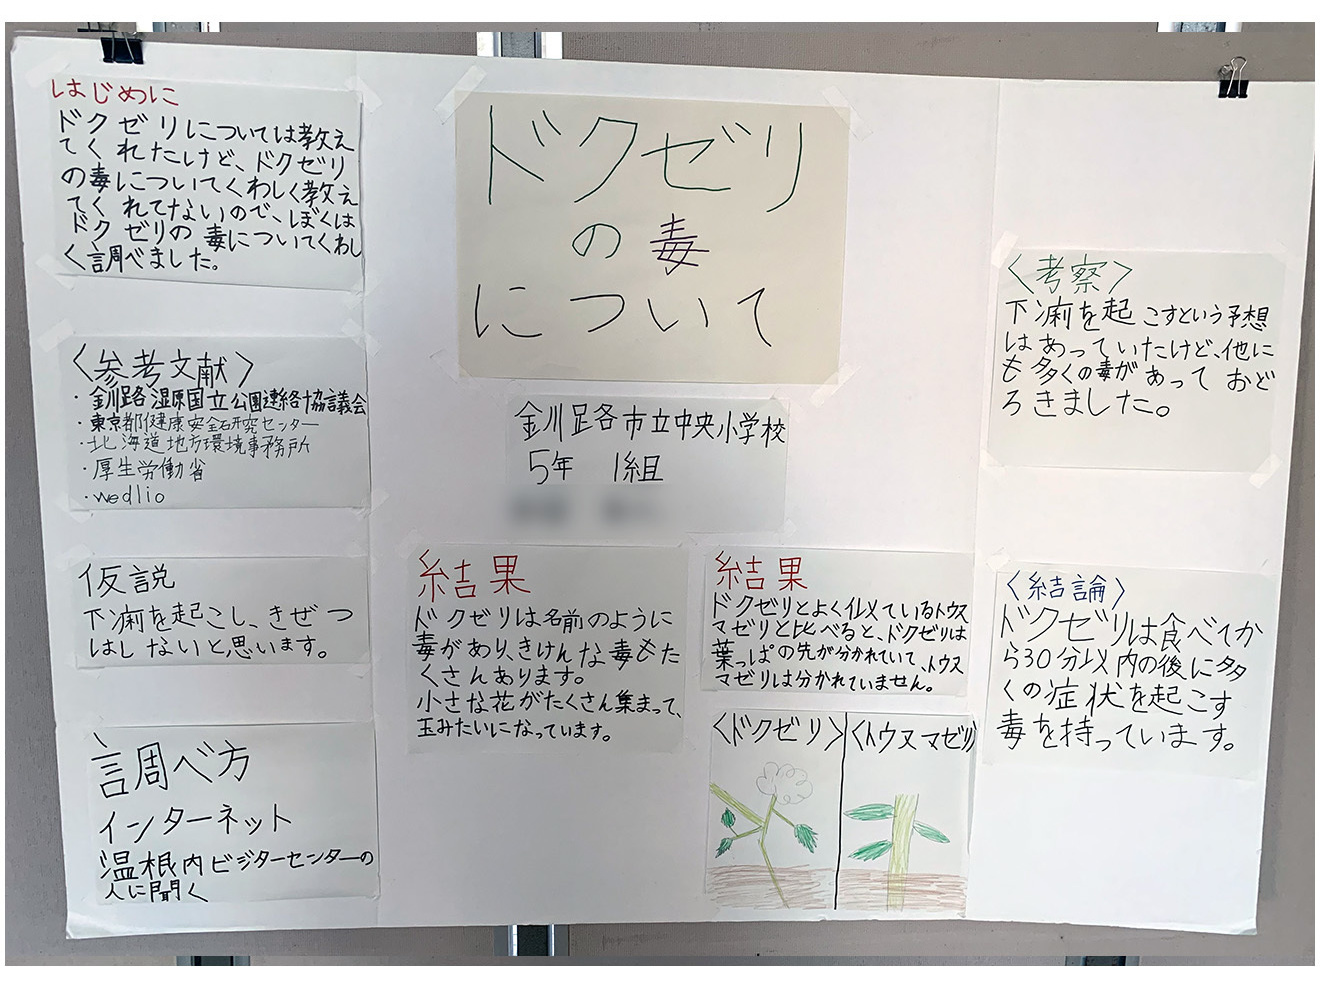 はじめに
ドクゼリについては教え
てくれたけど、ドクゼリ
の毒についてくわしく教え
てくれてないので、ぼくは
ドクゼリの毒についてくわし
く調べました。
<参考文献>
・釧路湿原国立公園連絡協議会
・東京都健康安全研究センター
・北海道地方環境事務所
・厚生労働省
・wedlio
仮説
下痢を起こし、きぜつ
はしないと思います。
調べ方
インターネット
温根内ビジターセンターの
人に聞く
ドクゼリ
の毒
について
釧路市立中央小学校
5年 1組
結果
ドクゼリは名前のように
毒があり、きけんな毒もた
くさんあります。
小さな花がたくさん集まって、
玉みたいになっています。
結果
ドクゼリとよく似ているトウヌ
マゼリと比べると、ドクゼリは
葉っぱの先が分かれていて、トウヌ
マゼリは分かれていません。
<ドクゼリ>
<トウヌマゼリ>
<考察>
下痢を起こすという予想
はあっていたけど、他に
も多くの毒があっておど
ろきました。
<結論>
ドクゼリは食べてか
ら30分以内の後に多
くの症状を起こす
毒を持っています。